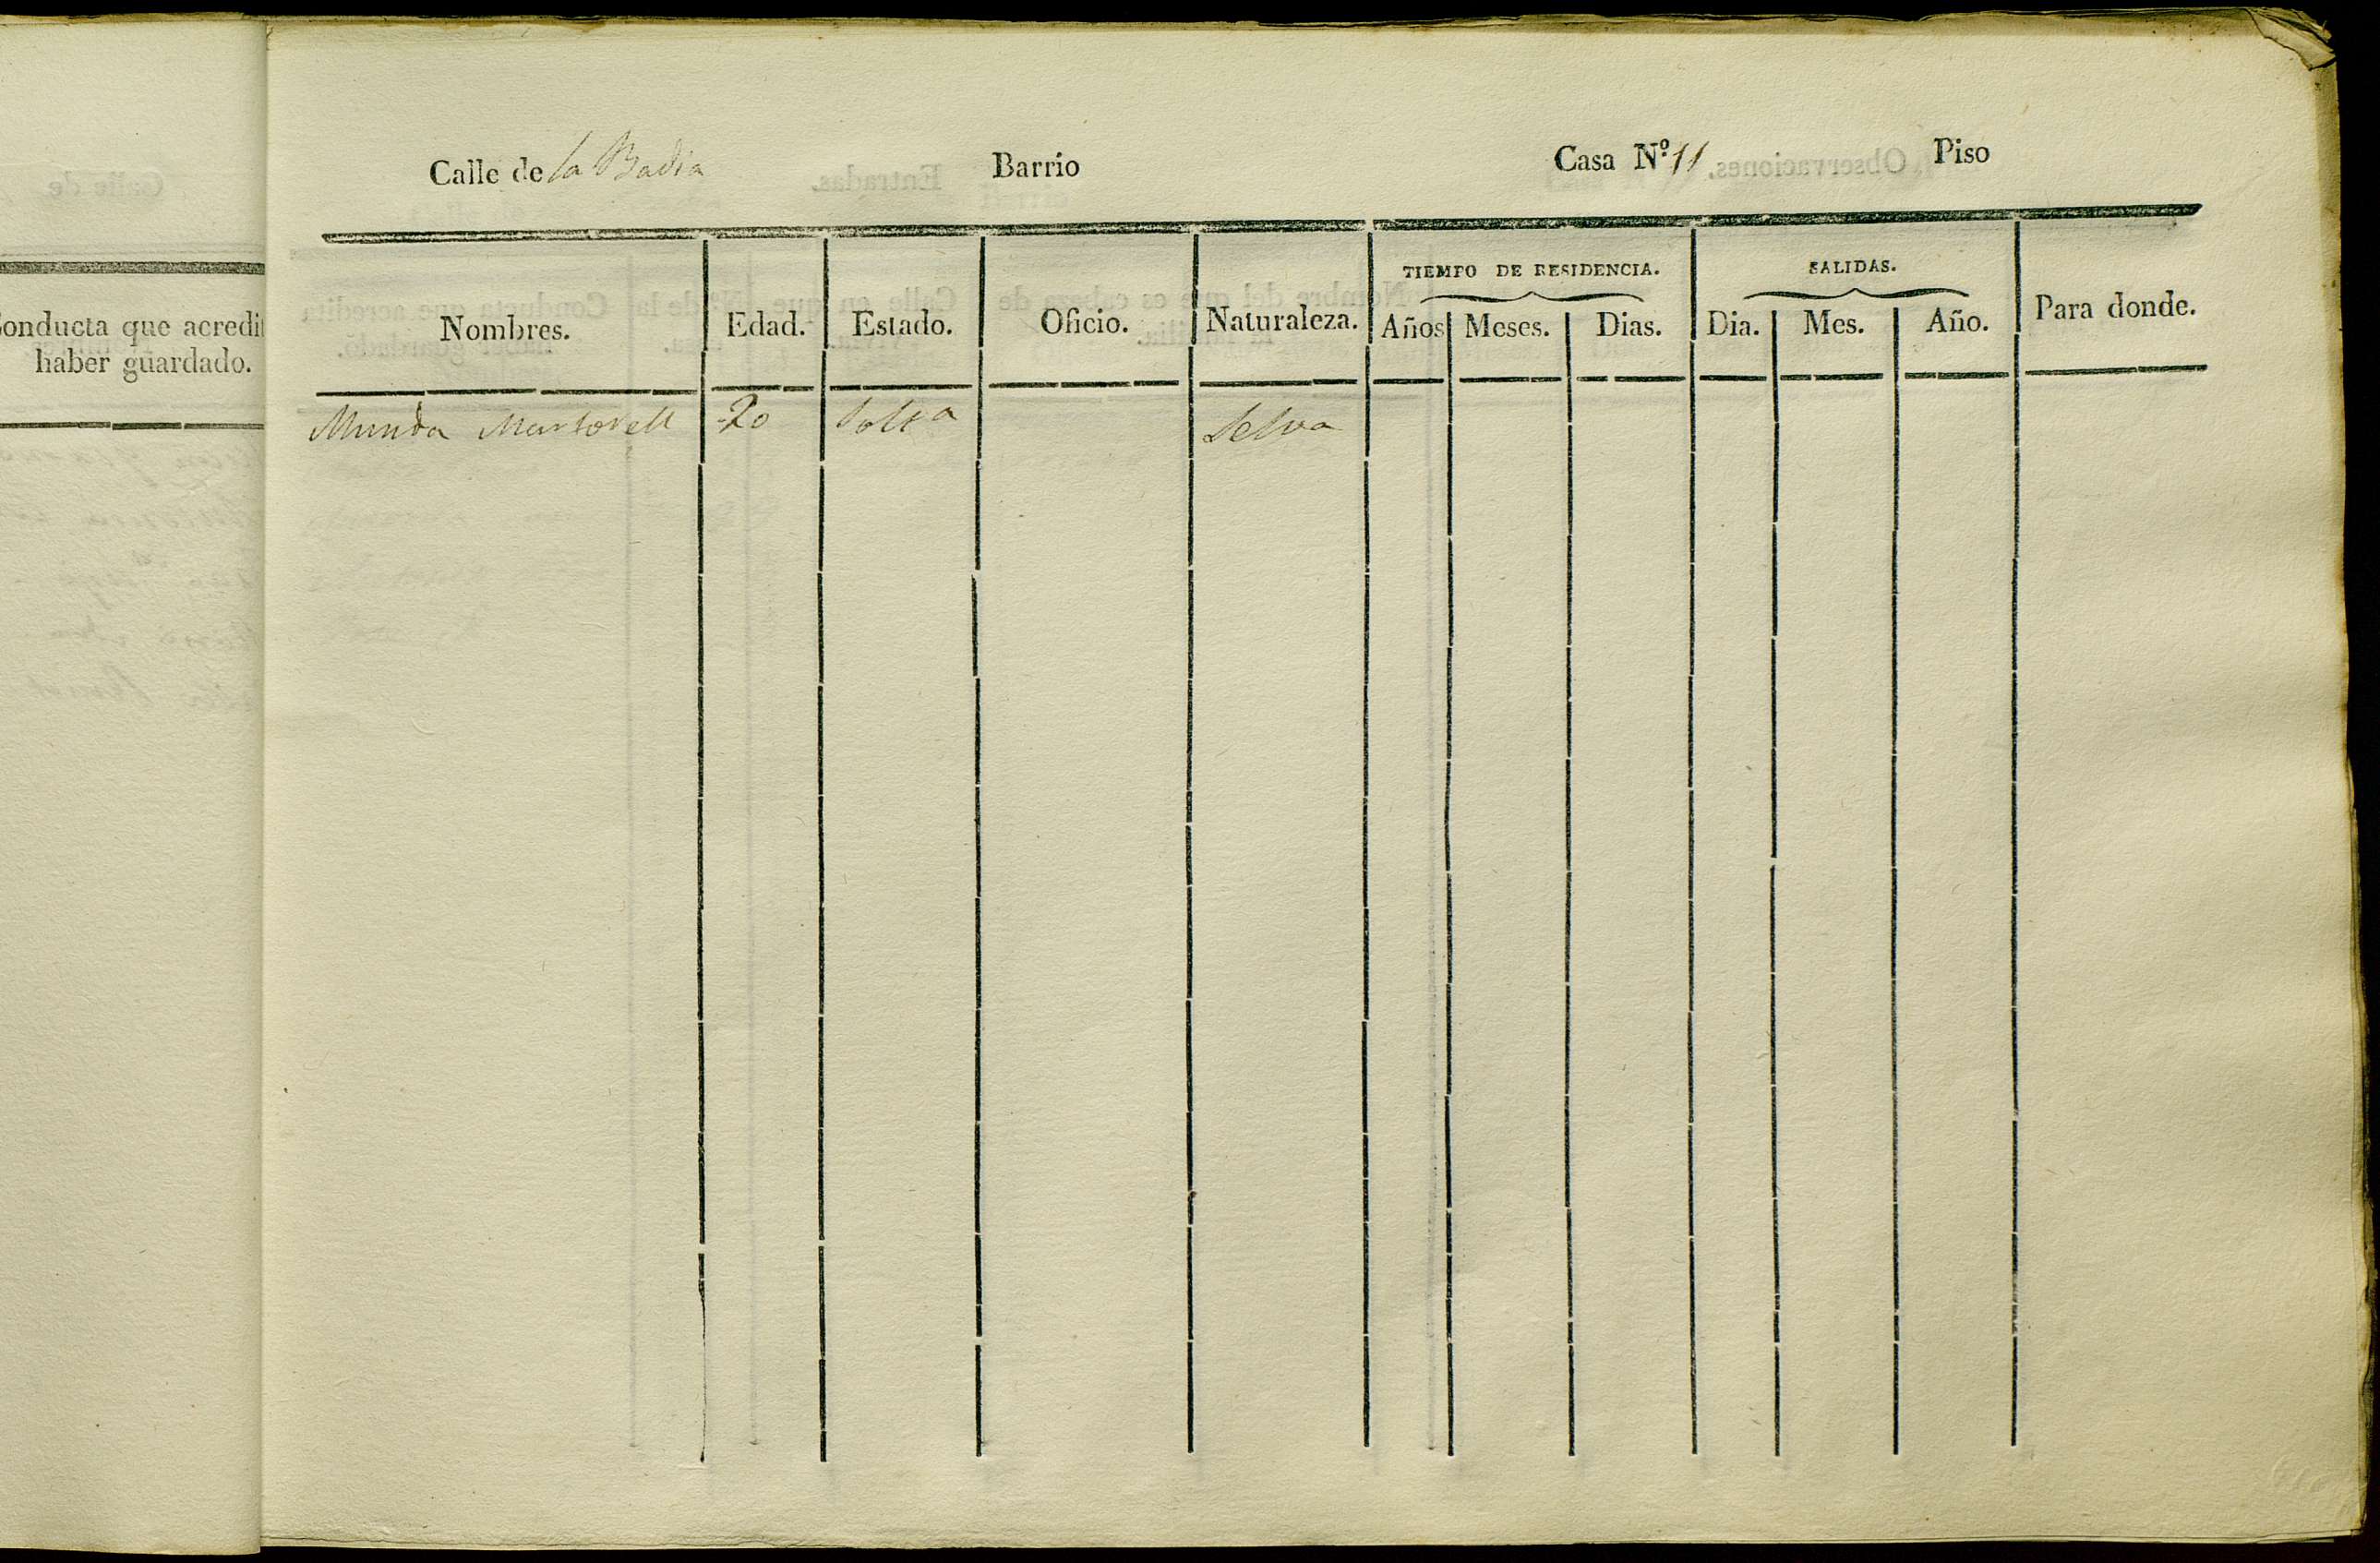 Calle de la Badia Barrio Casa Nº 11 Piso
TIEMPO DE RESIDENCIA. SALIDAS.
Nombres. Edad. Estado. Oficio. Naturaleza. Años Meses. Dias. Dia. Mes. Año. Para donde.
Munda Martorell 20 Solta Selva
Conducta que acredit
haber guardado.